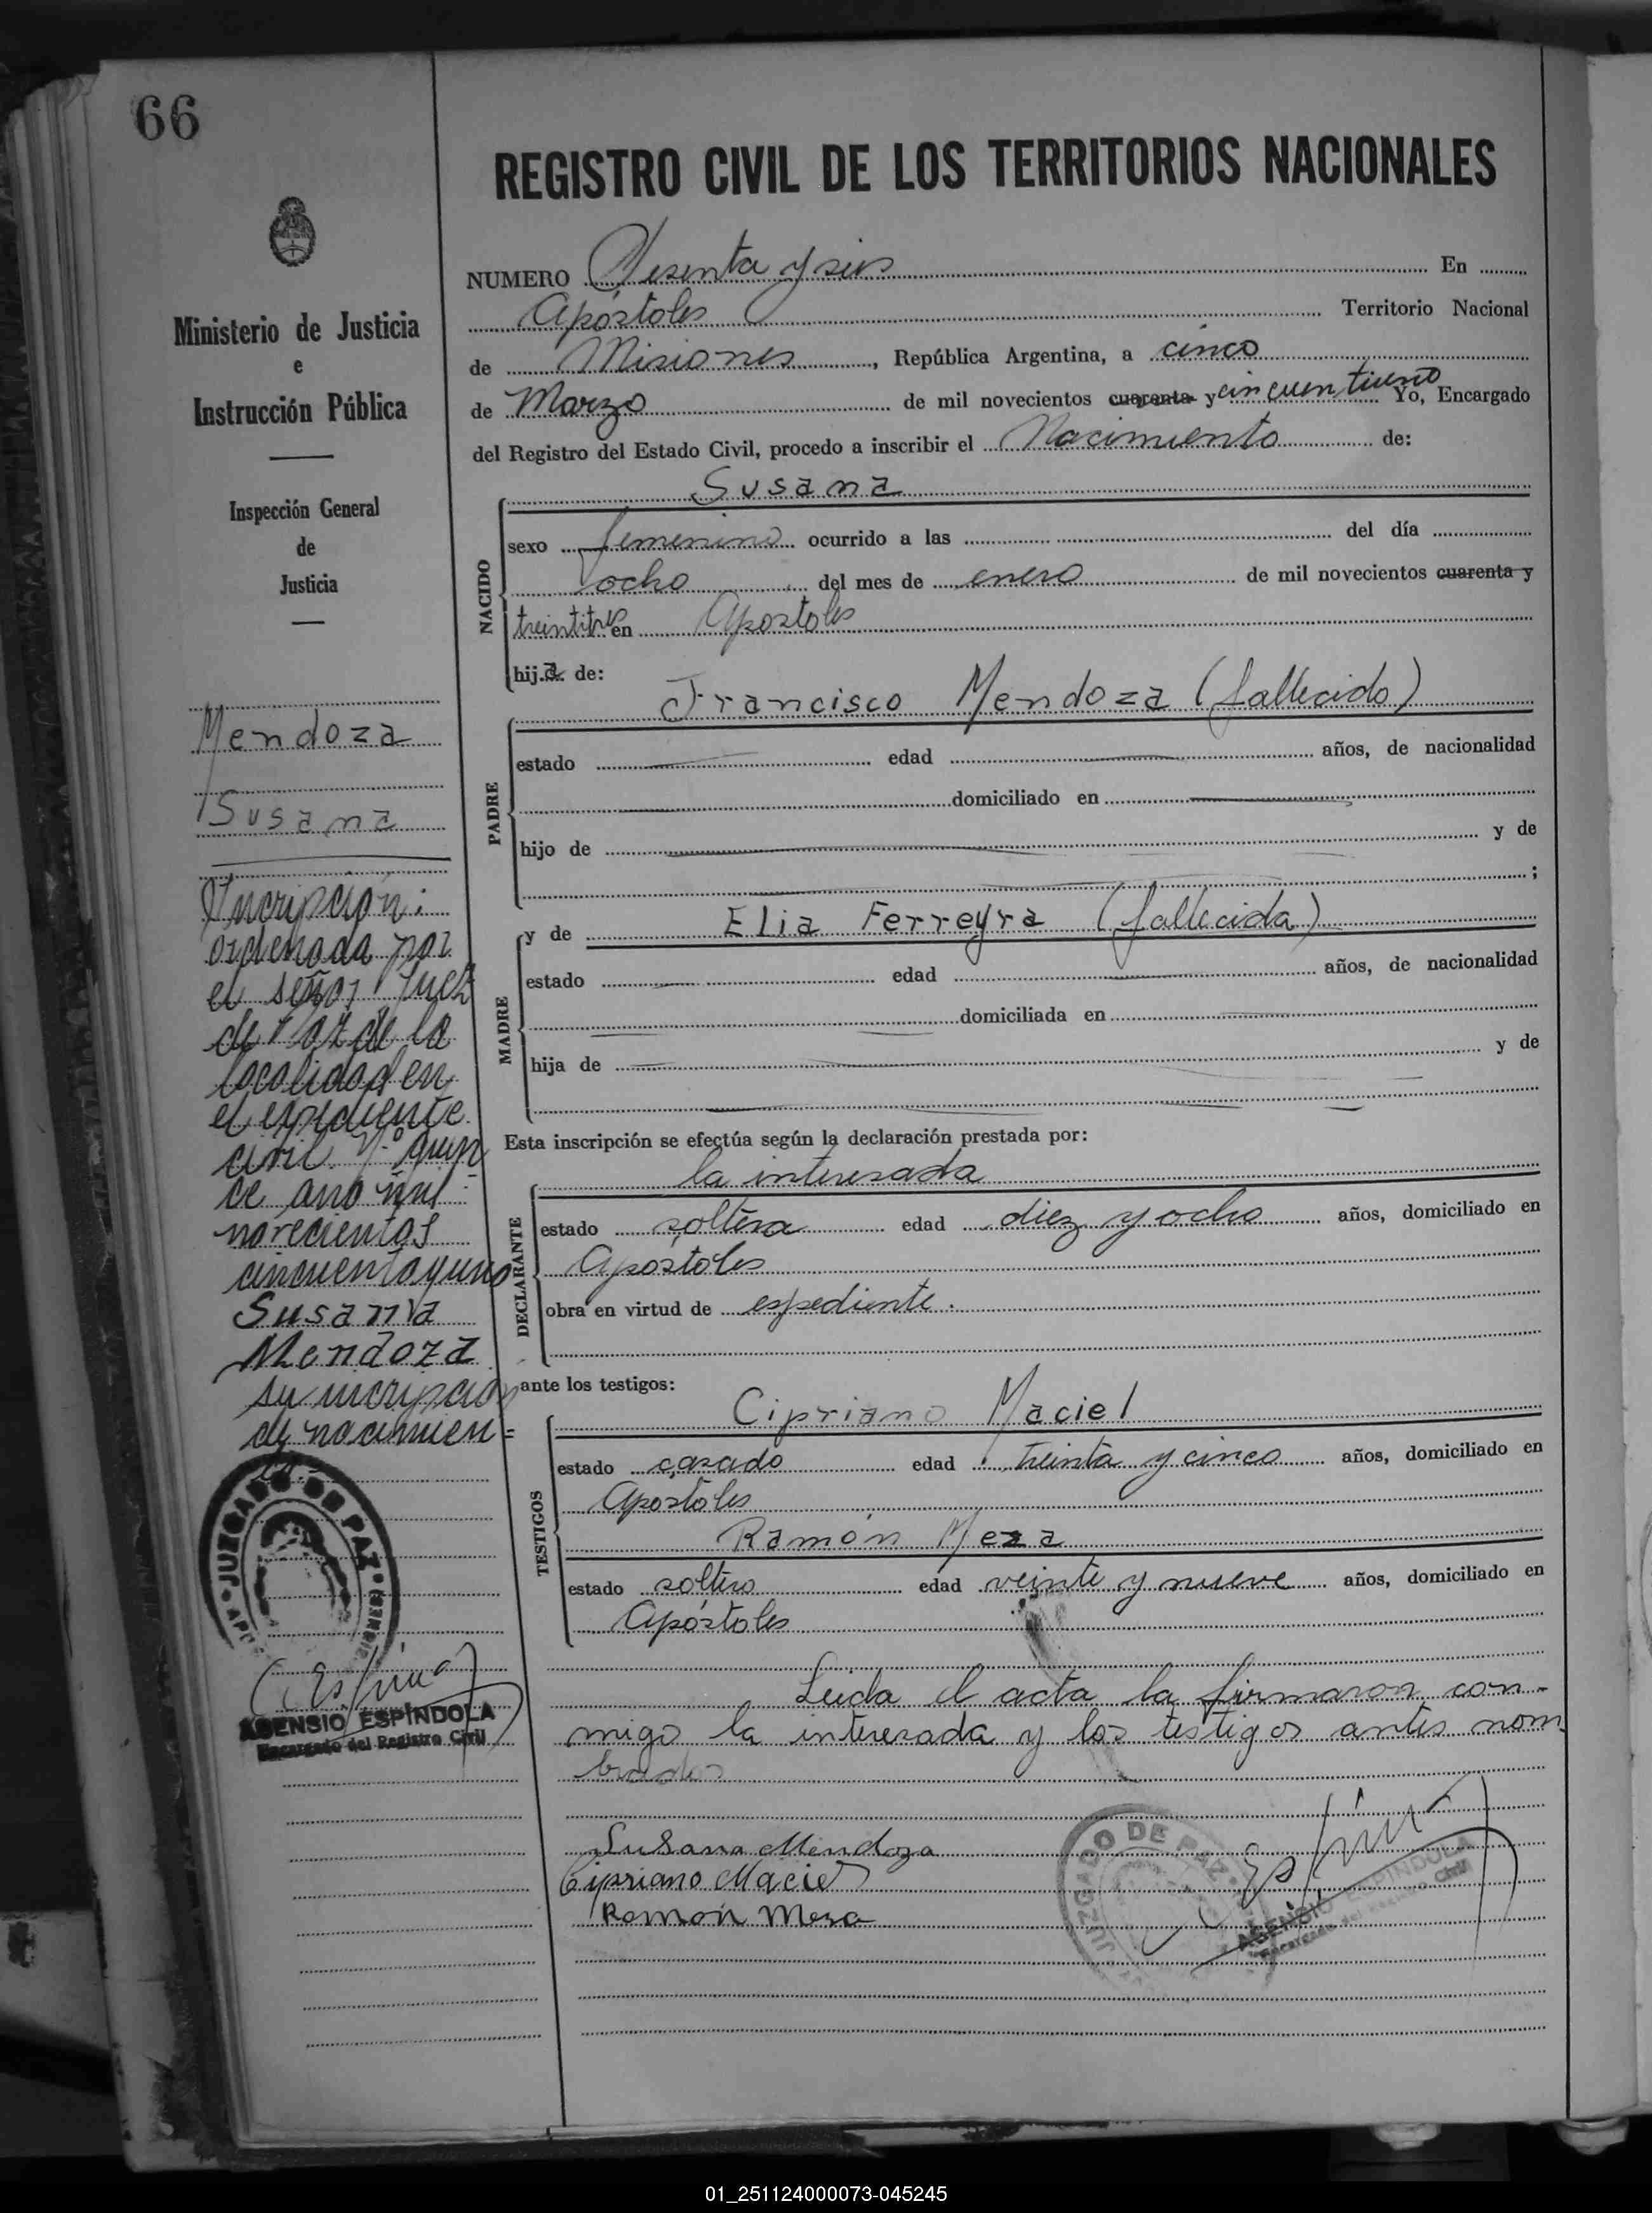 66
Ministerio de Justicia
e
Instrucción Pública
Inspección General
de
Justicia
Mendoza
Susana
Incripción:
ordenada por
el señor Juez
de Paz de la
localidad en
el expediente
civil Nº quin
ce año mil
novecientos
cincuentayuno
Susana
Mendoza
su incripción
de nacimien=
to.-
JUZGADO DE PAZ
ASENSIO ESPINDOLA
Encargado del Registro Civil
REGISTRO CIVIL DE LOS TERRITORIOS NACIONALES
NUMERO Sesenta y seis En
Apóstoles Territorio Nacional
de Misiones, República Argentina, a cinco
de Marzo de mil novecientos cuarenta y cincuentiuno Yo, Encargado
del Registro del Estado Civil, procedo a inscribir el Nacimiento de:
Susana
NACIDO
sexo femenino ocurrido a las del día
ocho del mes de enero de mil novecientos cuarenta y
treintitres en Apostoles
hija de:
Francisco Mendoza (fallecido)
PADRE
estado edad años, de nacionalidad
domiciliado en
hijo de y de
;
y de Elia Ferreyra (fallecida)
MADRE
estado edad años, de nacionalidad
domiciliada en
hija de y de
Esta inscripción se efectúa según la declaración prestada por:
la interesada
DECLARANTE
estado soltera edad diez y ocho años, domiciliado en
Apóstoles
obra en virtud de espediente.
ante los testigos:
Cipriano Maciel
TESTIGOS
estado casado edad treinta y cinco años, domiciliado en
Apostoles
Ramón Meza
estado soltero edad veinte y nueve años, domiciliado en
Apóstoles
Leida el acta la firmaron con-
migo la interesada y los testigos antes nom
brados
Susana Mendoza
Cipriano Maciel
Ramon Meza
JUZGADO DE PAZ
ASENSIO ESPINDOLA
Encargado del Registro Civil
01_251124000073-045245